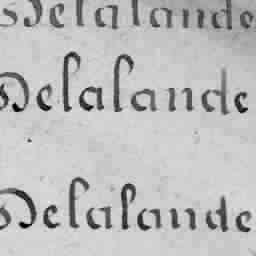 Delalande
Delalande
Delalande